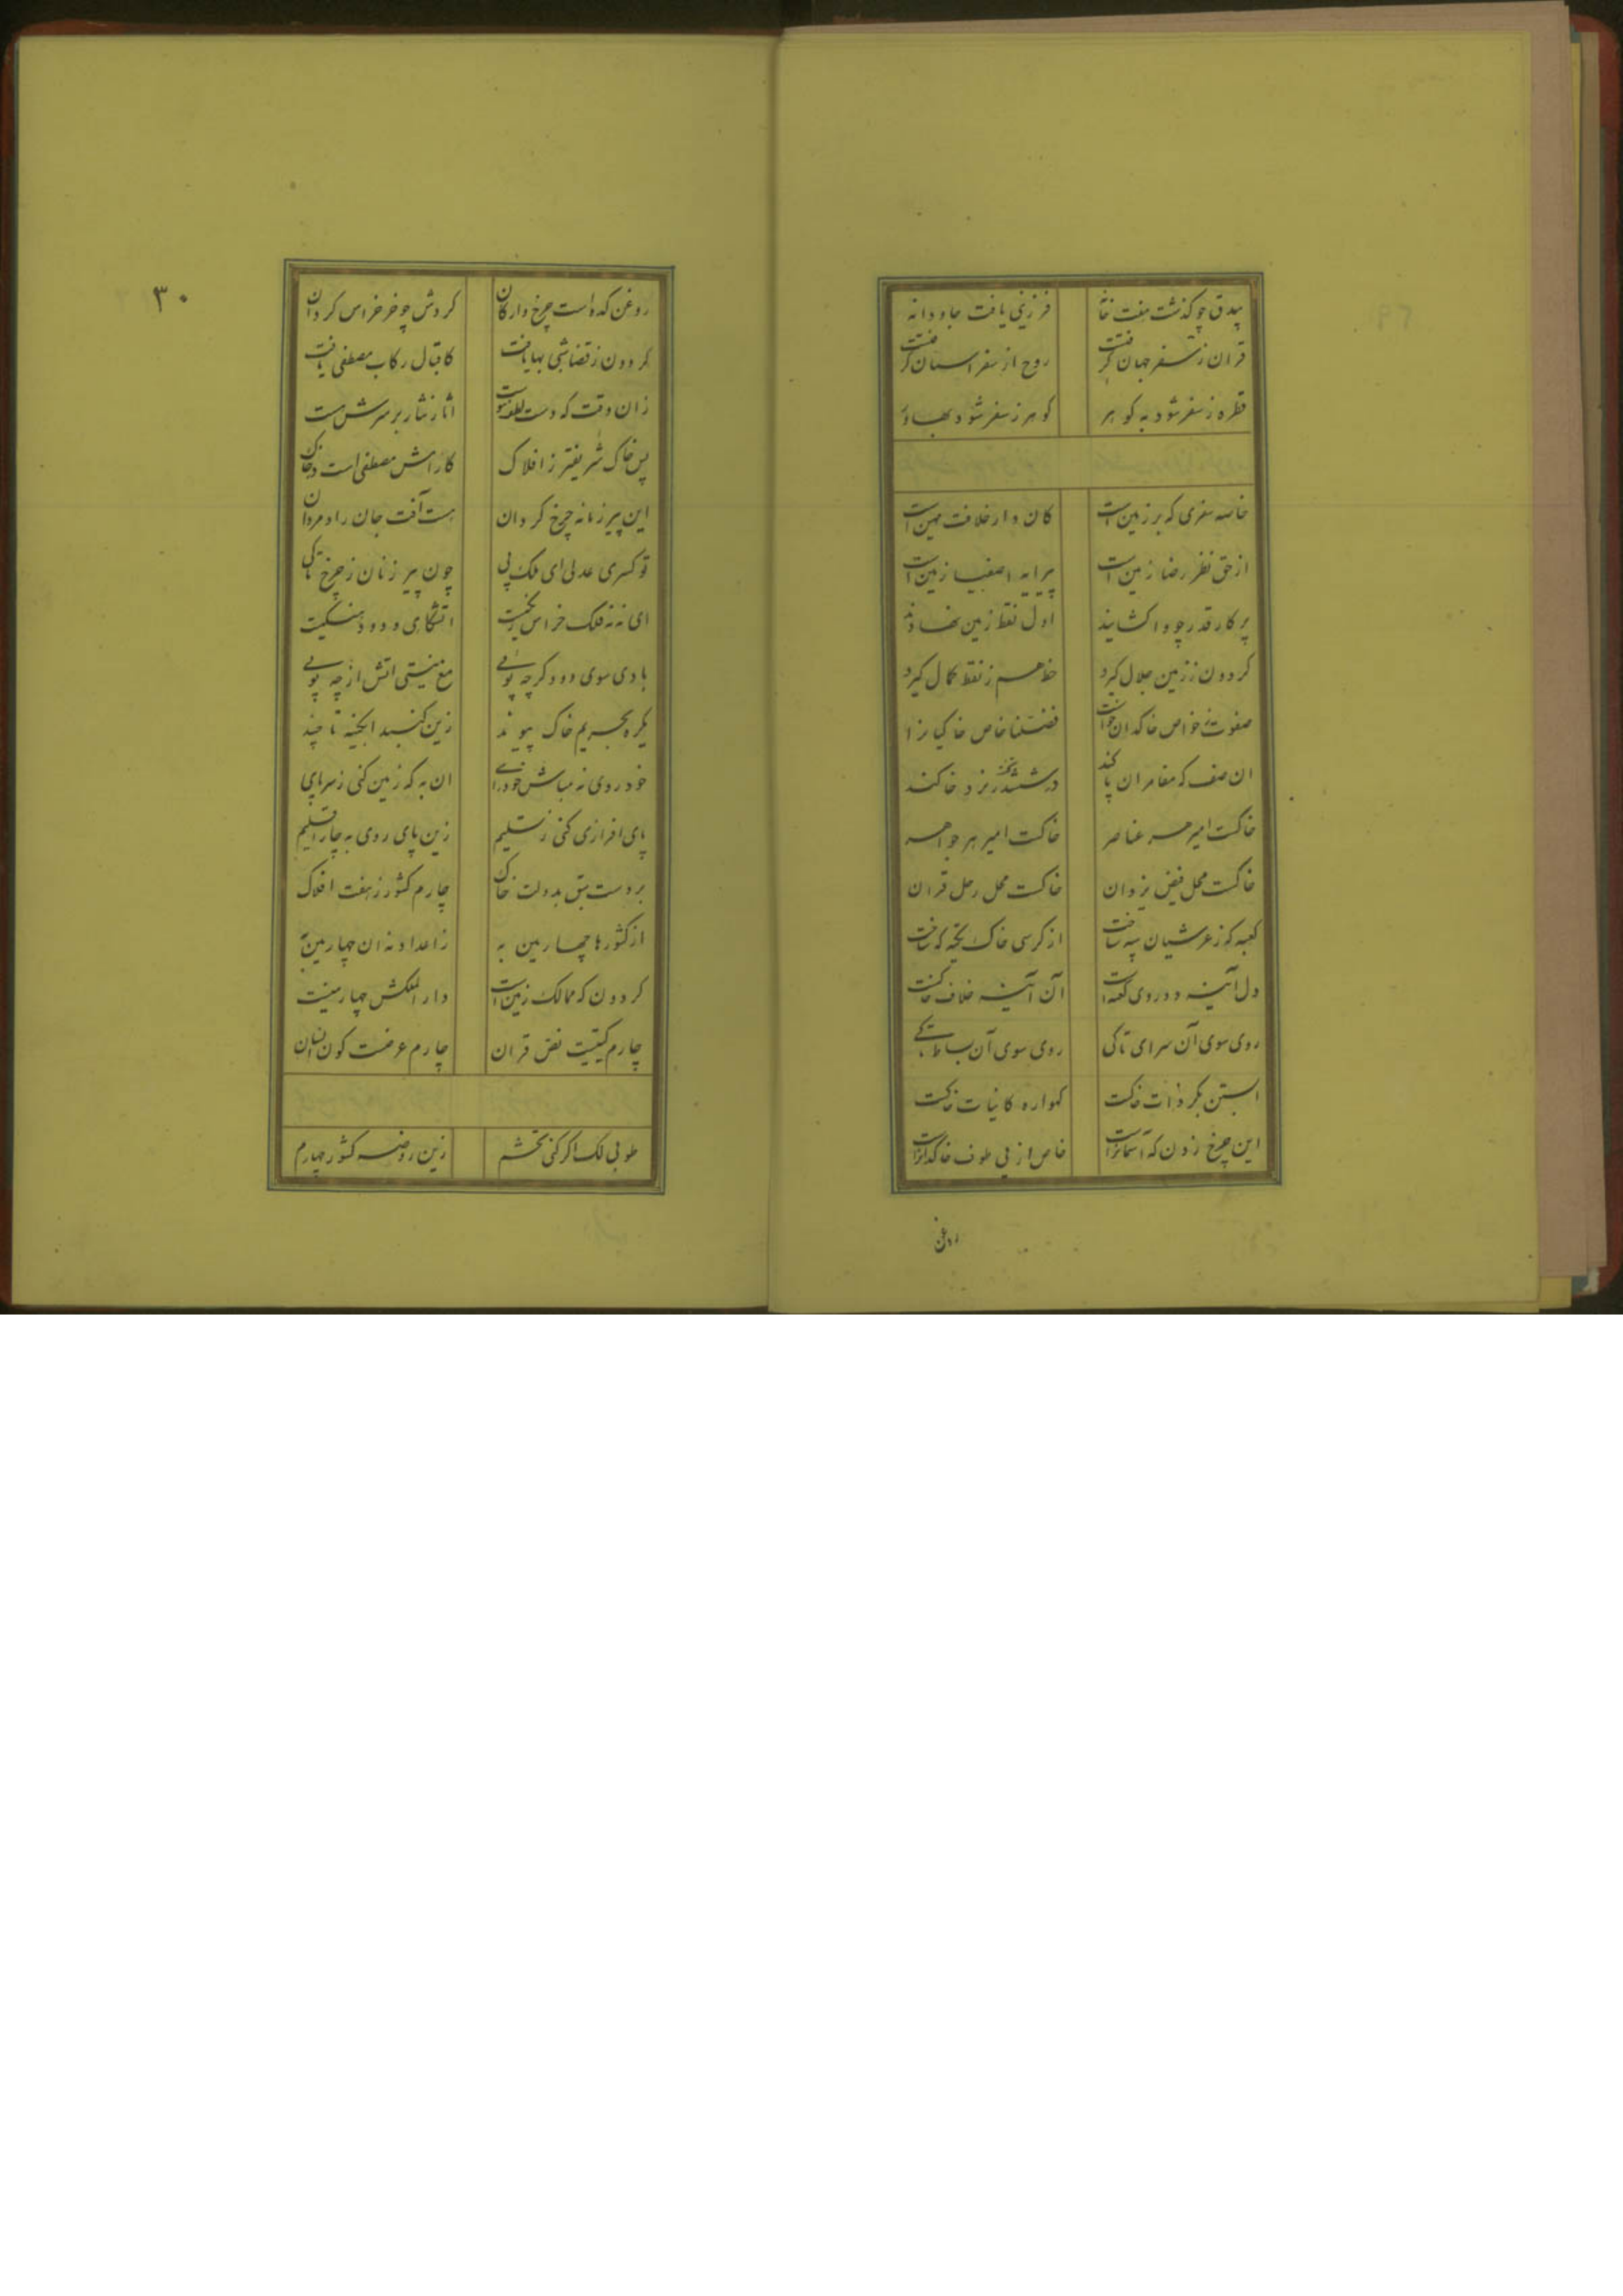 بیدق چو گذشت هفت خانه فرزینی یافت جاودانه
قران ز سفر جهان گرفتست روح از سفر اسمان گرفتست
قطره ز سفر شود به گوهر گوهر ز سفر شود بها ور
خاصه سفری که بر زمین است کان دار خلافت مهین است
از حق نظر رضا زمین است پیرایه اصفیا زمین است
پرکار قدر چو واکشایند اول نقط زمین نهادند
کردون ز زمین جلال گیرد خط هم ز نقط کمال گیرد
صفوت ز خواص خاکدان خواست
ان صف که مقامران پاکند در ششدر نرد خاکند
خاکست امیر هر عناصر خاکست امیر هر جواهر
خاکست محل فیض یزدان خاکست محل رحل قران
کعبه که ز عرشیان سپه ساخت از کرسی خاک تکیه که ساخت
دل آینه دو روی کعبه است آن آینه غلاف خاکست
روی سوی آن سرای تا کی روی سوی آن بساط تا کی
ابستن بکر ذات خاکست کهواره کاینات خاکست
این چرخ زدن که آسمانراست خاص از پی طوف خاکدانراست
روغن
۳۰
روغن کده است چرخ وارکان کردش چو خر خراس کردان
کردون ز قضا شبی بها یافت کاقبال رکاب مصطفی یافت
زان وقت که دست اثار نثار بر سرش هست
پس خاک شریفتر ز افلاک کارامش مصطفی است در خاک
این پیر زمانه چرخ کردان هست آفت جان راد مردان
تو کسری عدلی ای ملک پی چون پیر زنان ز چرخ تا کی
ای نه فلک خراس اتشکاری و دود
بادی سوی دود کرچه پویی مغ نیستی اتش از چه پویی
یکره بحریم خاک پیوند زین کنبد ابکینه تا چند
خود روی نه مباش خودرای ان به که زمین کنی ز سر پای
پای افرازی کنی ز تسلیم زین پای روی به چار اقلیم
بردست سبق بدولت خاک چارم کشور ز هفت افلاک
از کشورها چهارمین به زاعداد نه ان چهارمین به
کردون که ممالک زمین است دار الملکش چهارمینست
چارم کتبست نص قران چارم عرضست کون انسان
طوبی لک اکر کنی تجشم زین روضه کشور چهارم